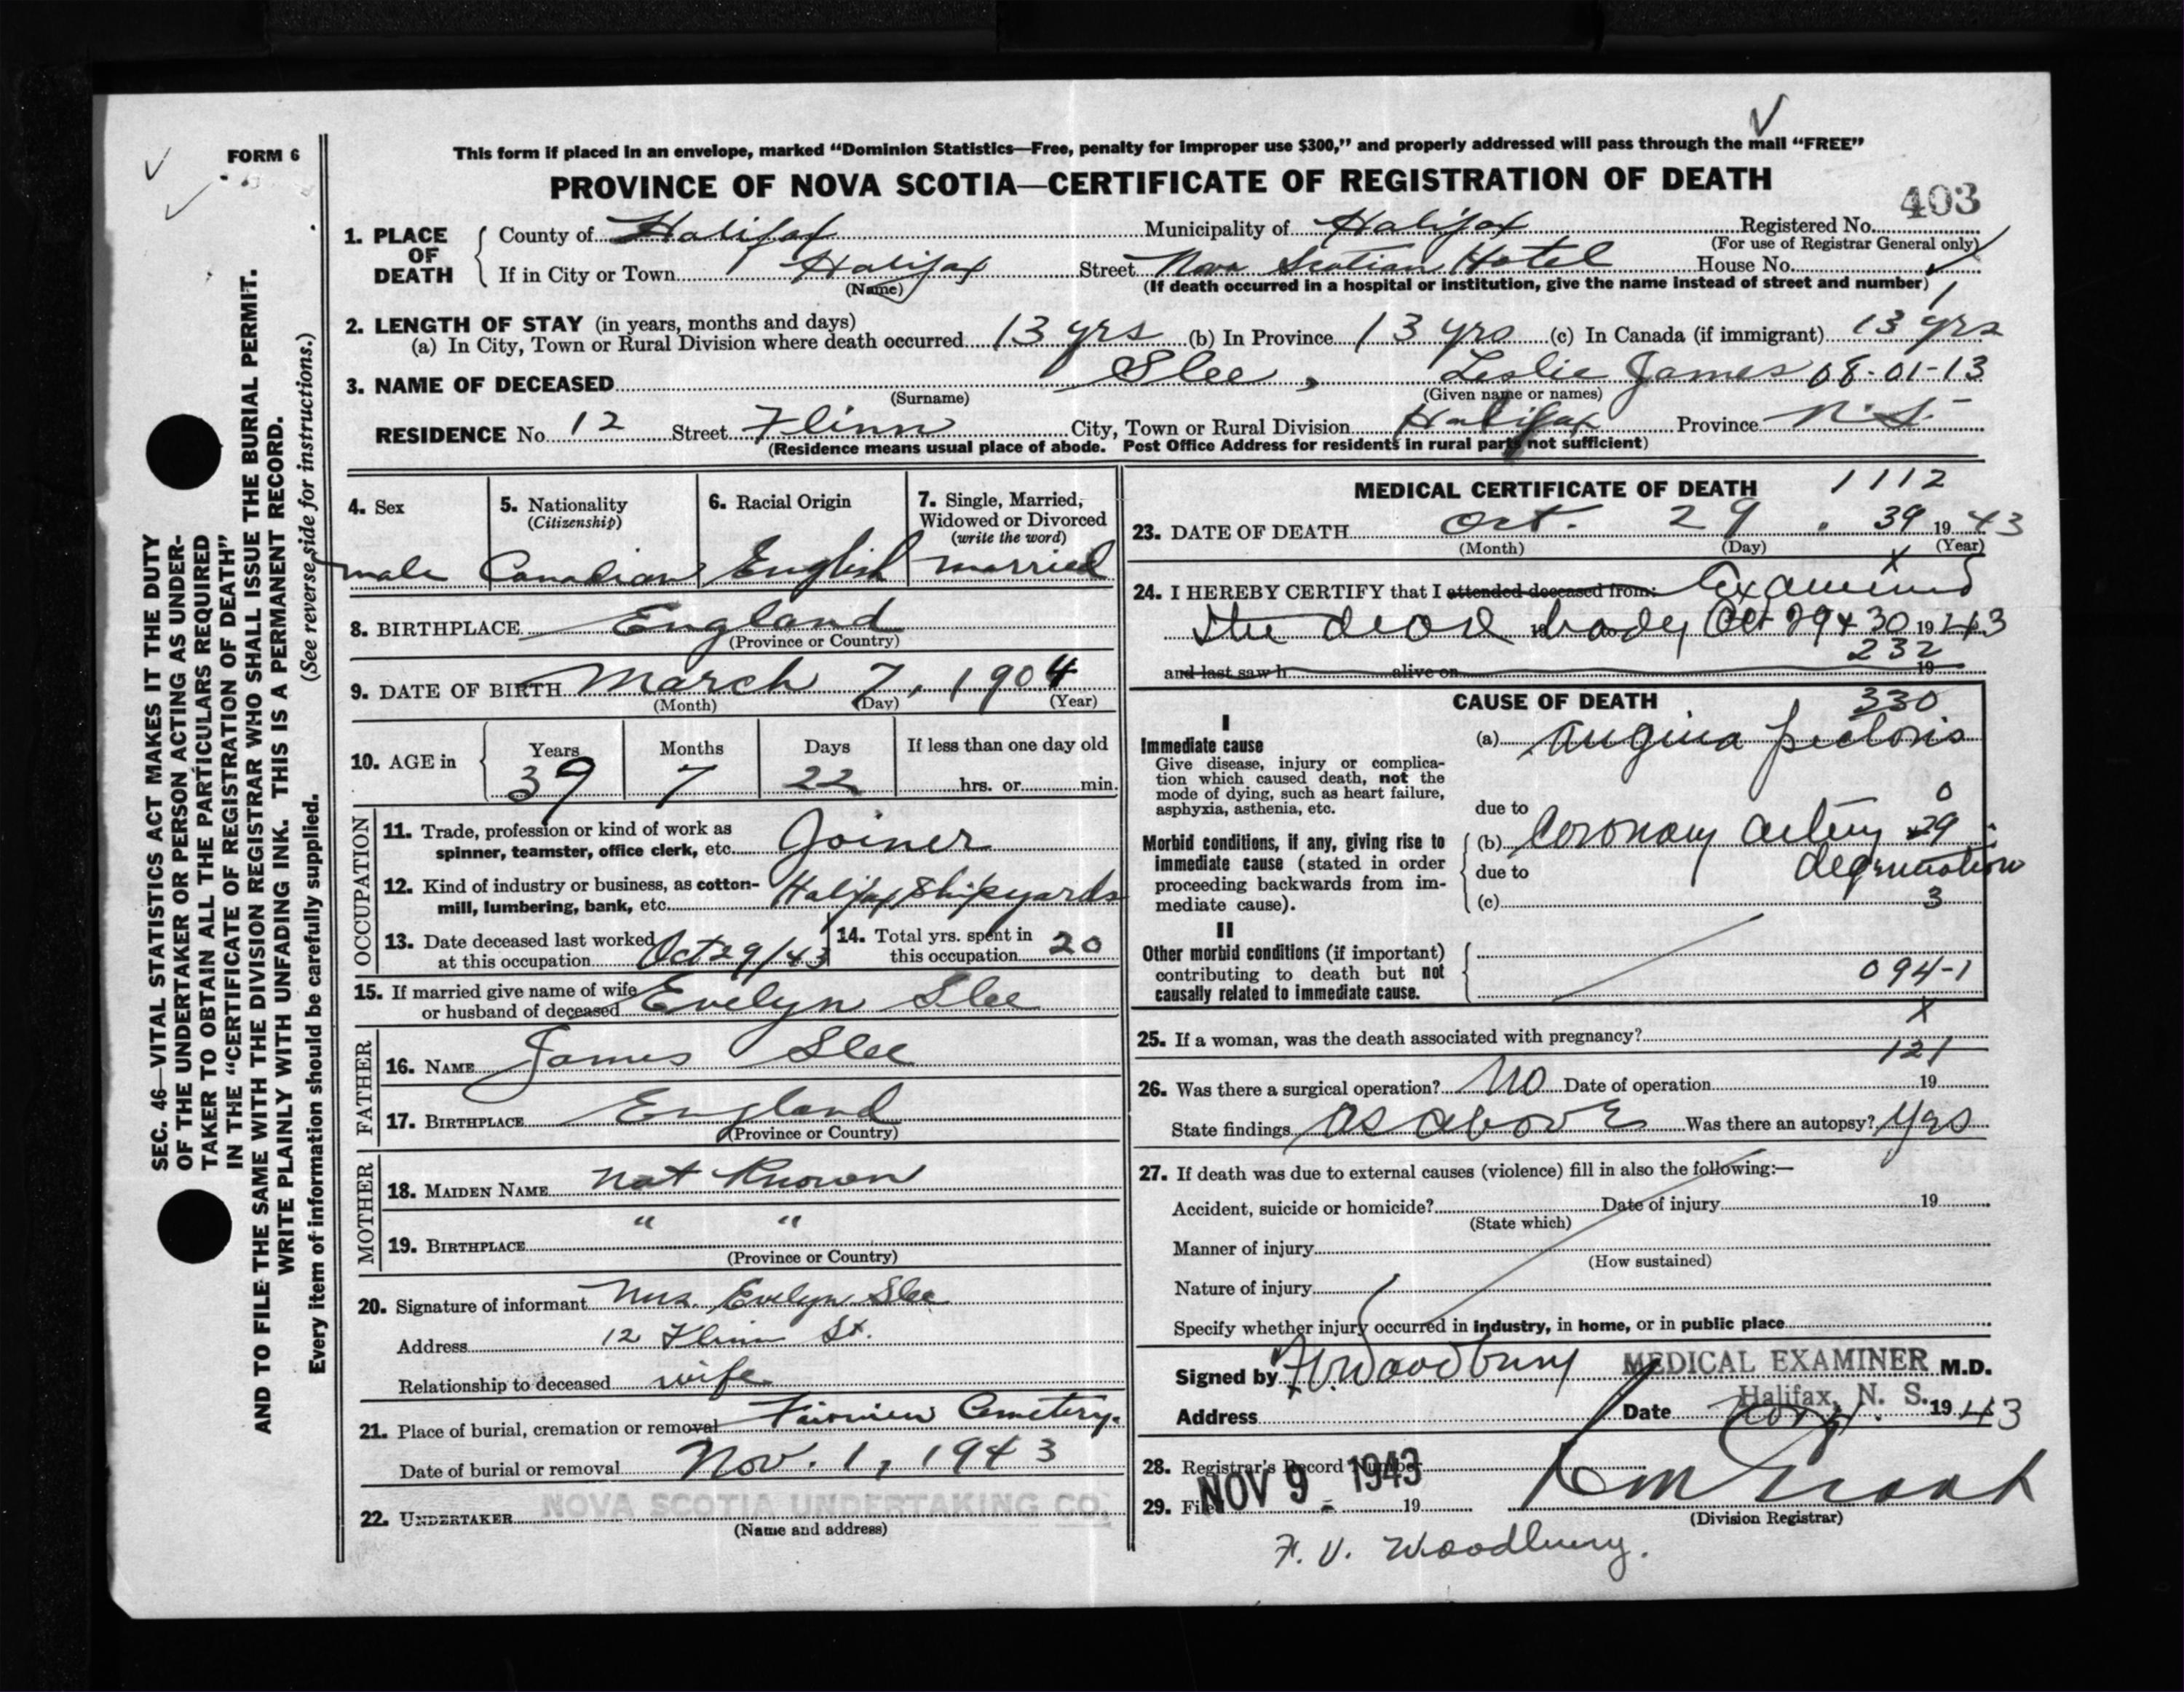 This form if placed in an envelope, marked “Dominion Statistics—Free, penalty for improper use $300,” and properly addressed will pass through the mail “FREE”
FORM 6
PROVINCE OF NOVA SCOTIA—CERTIFICATE OF REGISTRATION OF DEATH
403
1. PLACE OF DEATH
County of Halifax Municipality of Halifax Registered No.
(For use of Registrar General only)
If in City or Town Halifax Street Nova Scotian Hotel House No.
(Name) (If death occurred in a hospital or institution, give the name instead of street and number)
2. LENGTH OF STAY (in years, months and days)
(a) In City, Town or Rural Division where death occurred 13 yrs (b) In Province 13 yrs (c) In Canada (if immigrant) 13 yrs
3. NAME OF DECEASED Slee, Leslie James 08-01-13
(Surname) (Given name or names)
RESIDENCE No. 12 Street Flinn City, Town or Rural Division Halifax Province N.S.
(Residence means usual place of abode. Post Office Address for residents in rural parts not sufficient)
4. Sex
male
5. Nationality
(Citizenship)
Canadian
6. Racial Origin
English
7. Single, Married,
Widowed or Divorced
(write the word)
married
8. BIRTHPLACE England
(Province or Country)
9. DATE OF BIRTH March 7, 1904
(Month) (Day) (Year)
10. AGE in
Years Months Days If less than one day old
39 7 22 hrs. or min.
OCCUPATION
11. Trade, profession or kind of work as
spinner, teamster, office clerk, etc. Joiner
12. Kind of industry or business, as cotton-
mill, lumbering, bank, etc. Halifax Shipyards
13. Date deceased last worked
at this occupation Oct 29/43
14. Total yrs. spent in
this occupation 20
15. If married give name of wife
or husband of deceased Evelyn Slee
FATHER
16. NAME James Slee
17. BIRTHPLACE England
(Province or Country)
MOTHER
18. MAIDEN NAME not Known
19. BIRTHPLACE " "
(Province or Country)
20. Signature of informant Mrs. Evelyn Slee
Address 12 Flinn St.
Relationship to deceased wife
21. Place of burial, cremation or removal Fairview Cemetery.
Date of burial or removal Nov. 1, 1943
22. UNDERTAKER NOVA SCOTIA UNDERTAKING CO.
(Name and address)
MEDICAL CERTIFICATE OF DEATH 1112
23. DATE OF DEATH Oct. 29. 39 1943
(Month) (Day) (Year)
x
24. I HEREBY CERTIFY that I attended deceased from: Examined
the dead body Oct 29 + 30 1943
232
and last saw h alive on 19
CAUSE OF DEATH 330
I
Immediate cause
Give disease, injury or complica-
tion which caused death, not the
mode of dying, such as heart failure,
asphyxia, asthenia, etc.
(a) Angina pectoris
0
due to
Morbid conditions, if any, giving rise to
immediate cause (stated in order
proceeding backwards from im-
mediate cause).
(b) Coronary artery 29
due to degeneration
(c) 3
II
Other morbid conditions (if important)
contributing to death but not
causally related to immediate cause.
094-1
x
25. If a woman, was the death associated with pregnancy?
121
26. Was there a surgical operation? No Date of operation 19
State findings as above Was there an autopsy? Yes
27. If death was due to external causes (violence) fill in also the following:—
Accident, suicide or homicide? Date of injury 19
(State which)
Manner of injury
(How sustained)
Nature of injury
Specify whether injury occurred in industry, in home, or in public place
Signed by F.V. Woodbury MEDICAL EXAMINER M.D.
Address Date Halifax, N. S. 1943
28. Registrar's Record Number
29. Filed NOV 9 - 1943 19
(Division Registrar)
F. V. Woodbury.
SEC. 46—VITAL STATISTICS ACT MAKES IT THE DUTY
OF THE UNDERTAKER OR PERSON ACTING AS UNDER-
TAKER TO OBTAIN ALL THE PARTICULARS REQUIRED
IN THE “CERTIFICATE OF REGISTRATION OF DEATH”
AND TO FILE THE SAME WITH THE DIVISION REGISTRAR WHO SHALL ISSUE THE BURIAL PERMIT.
WRITE PLAINLY WITH UNFADING INK. THIS IS A PERMANENT RECORD.
Every item of information should be carefully supplied. (See reverse side for instructions.)